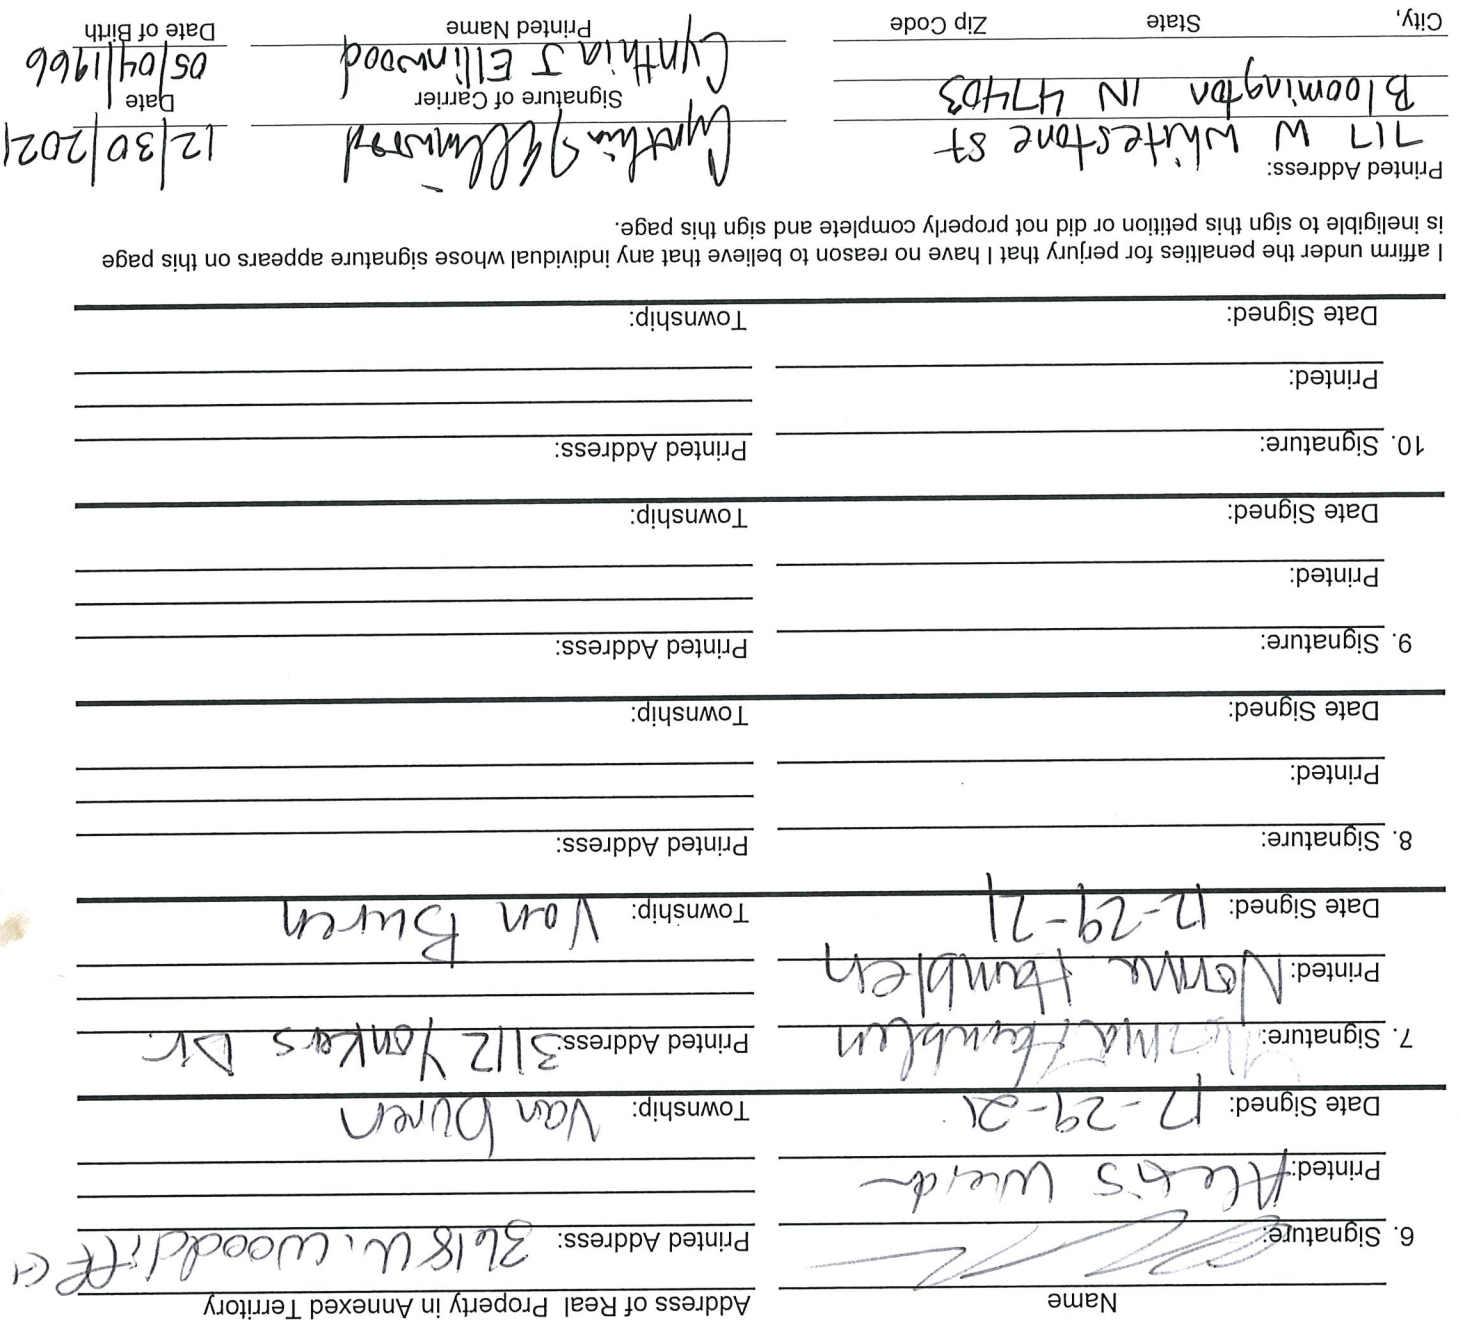 Name Address of Real Property in Annexed Territory
6. Signature: Printed Address: 3618 W. Woodcliff Ct
Printed: Alexis
Date Signed: 12-29-21 Township: Van Buren
7. Signature: Norma Hamblen Printed Address: 3112 Yonkers Dr.
Printed: Norma Hamblen
Date Signed: 12-29-21 Township: Van Buren
8. Signature: Printed Address:
Printed:
Date Signed: Township:
9. Signature: Printed Address:
Printed:
Date Signed: Township:
10. Signature: Printed Address:
Printed:
Date Signed: Township:
I affirm under the penalties for perjury that I have no reason to believe that any individual whose signature appears on this page
is ineligible to sign this petition or did not properly complete and sign this page.
Printed Address:
717 W Whitestone St Cynthia J Ellinwood 12/30/2021
Signature of Carrier Date
Bloomington IN 47403 Cynthia J Ellinwood 05/04/1966
City, State Zip Code Printed Name Date of Birth